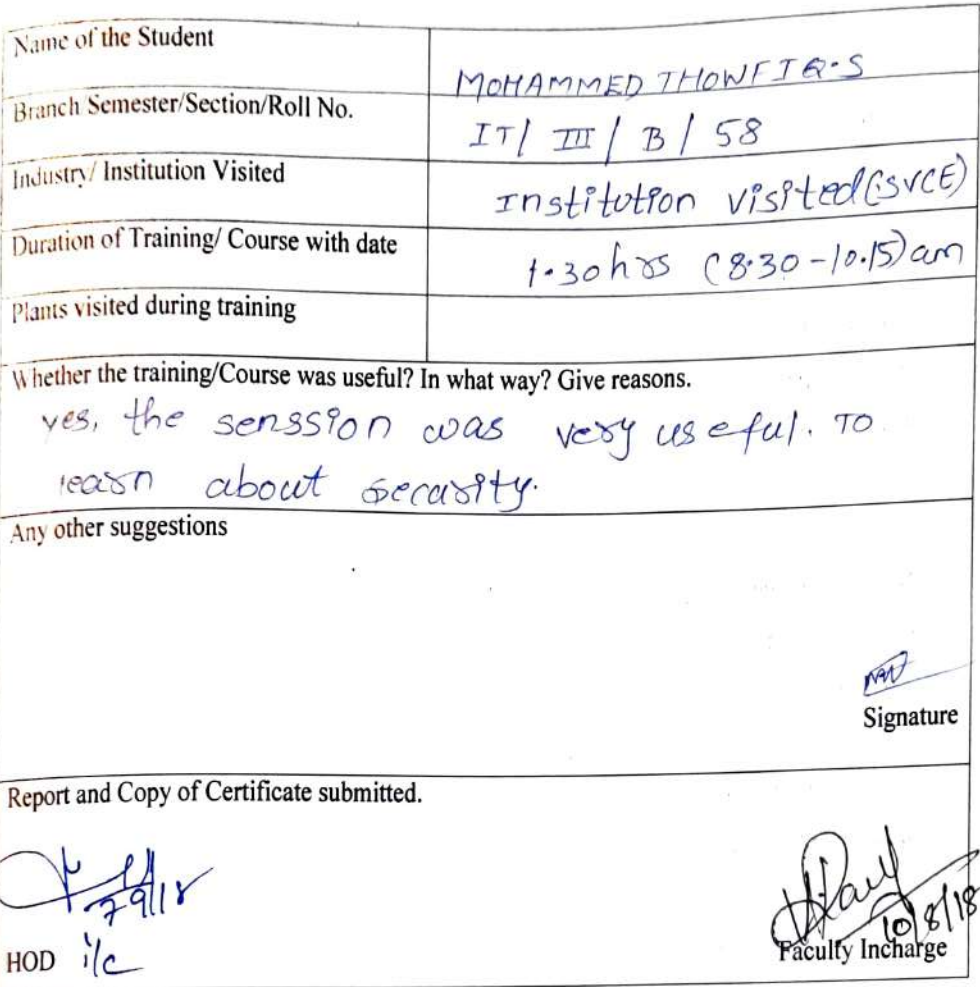 Name of the Student
MOHAMMED THOWFIQ.S
Branch Semester/Section/Roll No.
IT/ III / B / 58
Industry/ Institution Visited
Institution visited (SVCE)
Duration of Training/ Course with date
1.30 hrs (8.30-10.15) am
Plants visited during training
Whether the training/Course was useful? In what way? Give reasons.
yes, the senssion was very useful. TO
learn about security.
Any other suggestions
Signature
Report and Copy of Certificate submitted.
7/9/18
10/8/18
HOD i/c
Faculty Incharge